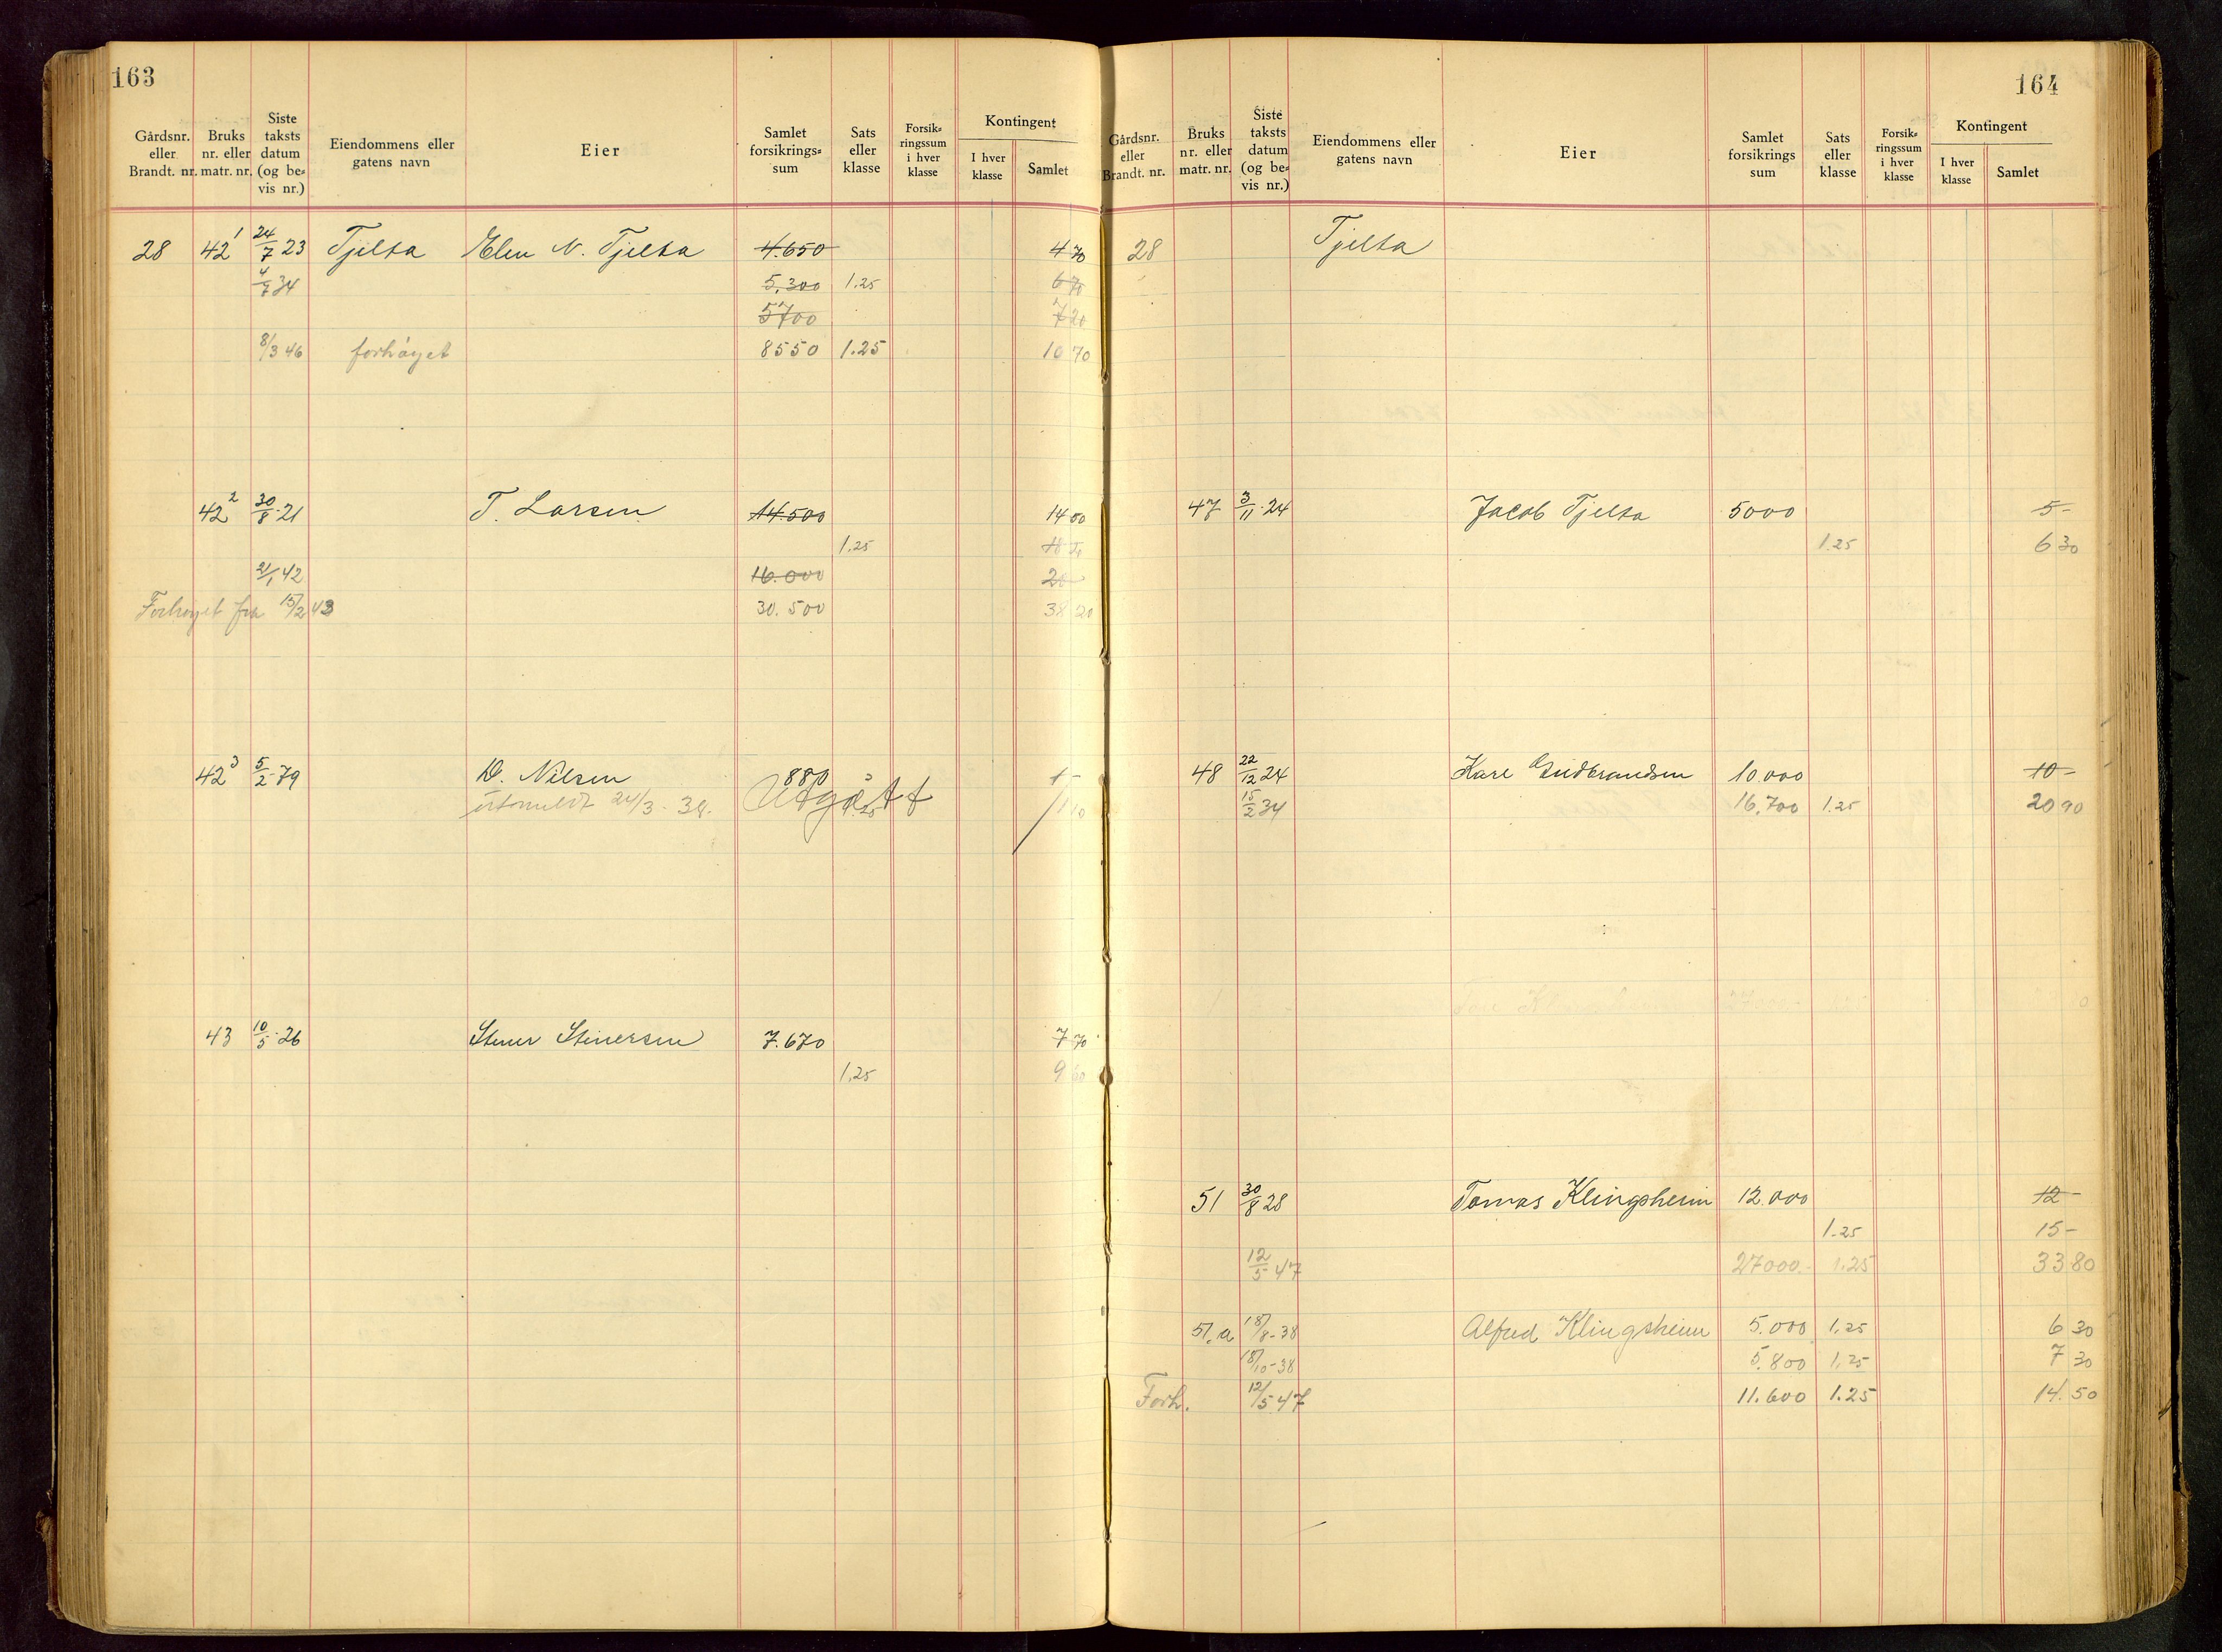 163
Gårdsnr. eller Brandt. nr.
Bruks nr. eller matr. nr.
Siste taksts datum (og be= vis nr.)
Eiendommens eller gatens navn
Eier
Samlet forsikrings= sum
Sats eller klasse
Forsik= ringssum i hver klasse
Kontingent
I hver klasse
Samlet
28 42¹ 24/7 23 Tjelta Elen N. Tjelta 4.650 4 70
4/7 34 5.300 1.25 6 70
5700 7 20
8/3 46 forhøyet 8550 1.25 10 70
42² 30/8-21 T. Larsen 14.500 14 50
1.25
21/1 42 16.000 20-
Forhøyet fra 15/2 43 30.500 38 20
42³ 5/2-79 D. Nilsen 880 1-
utmeldt 24/3-38. Utgått 1.25 1 10
43 10/5-26 Stener Stenersen 7.670 7 70
1.25 9 60
164
Gårdsnr. eller Brandt. nr.
Bruks nr. eller matr. nr.
Siste taksts datum (og be= vis nr.)
Eiendommens eller gatens navn
Eier
Samlet forsikrings sum
Sats eller klasse
Forsik= ringssum i hver klasse
Kontingent
I hver klasse
Samlet
28 Tjelta
47 3/11-24 Jacob Tjelta 5000 5-
1.25 6 30
48 22/12 24 Karl Gudbrandsen 10.000 10-
15/2 34 16.700 1.25 20 90
51 30/8 28 Tomas Klingsheim 12.000 12-
1.25 15-
12/5 47 27000.- 1.25 33 80
51.a 18/8-38 Alfred Klingsheim 5.000 1.25 6 30
18/10-38 5.800 1.25 7 30
Forh. 12/5 47 11.600 1.25 14.50